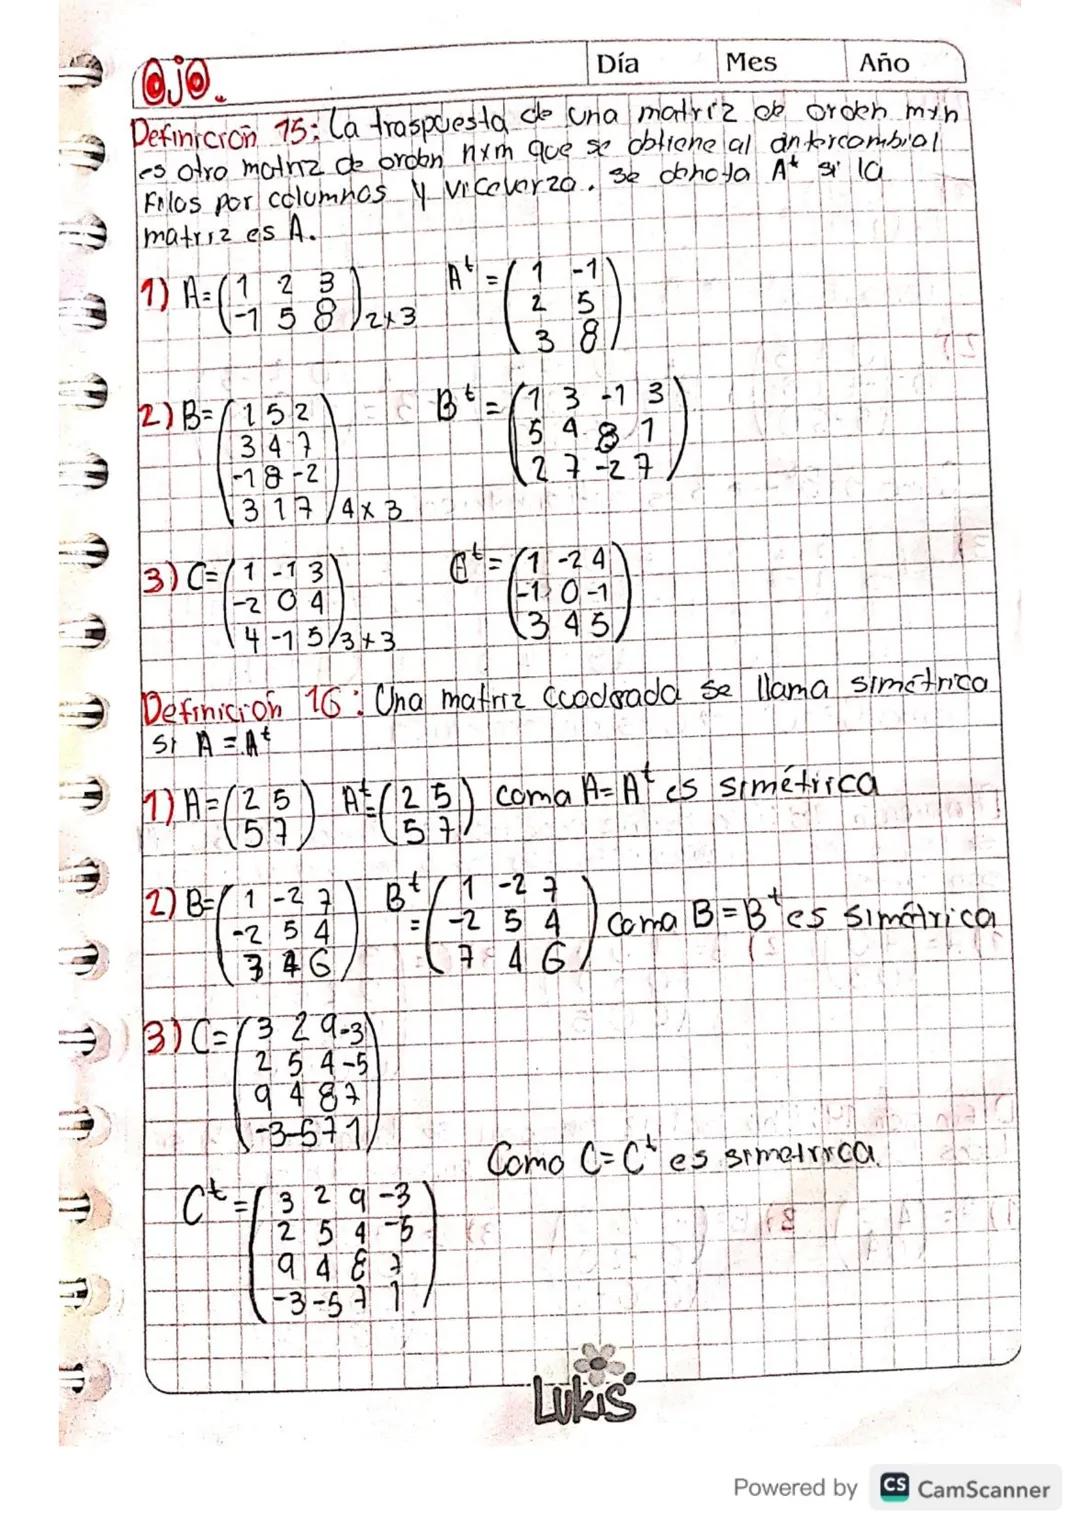 Ojo.
Día Mes Año
Definición 15: La traspuesta de una matriz de orden mxn
es otro matriz de orden nxm que se obtiene al intercambial
Filas por columnas y viceverza. se denota A^t si la
matriz es A.
1) A=(1 2 3 A^t = (1 -1
-1 5 8)2x3 2 5
3 8)
2) B=(1 5 2 B^t = (1 3 -1 3
3 4 7 5 4 8 1
-1 8 -2 2 7 -2 7)
3 1 7)4x3
3) C=(1 -1 3 C^t = (1 -2 4
-2 0 4 -1 0 -1
4 -1 5)3x3 3 4 5)
Definición 16: Una matriz cuadrada se llama simétrica
si A = A^t
1) A=(2 5 A^t=(2 5 como A=A^t es simétrica
5 7) 5 7)
2) B=(1 -2 7 B^t=(1 -2 7
-2 5 4 -2 5 4 Como B=B^t es simétrica
3 4 6) 7 4 6)
3) C=(3 2 9 -3
2 5 4 -5
9 4 8 7
-3 -5 7 1)
Como C=C^t es simetrica
C^t=(3 2 9 -3
2 5 4 -5
9 4 8 7
-3 -5 7 1)
Lukis
Powered by CS CamScanner